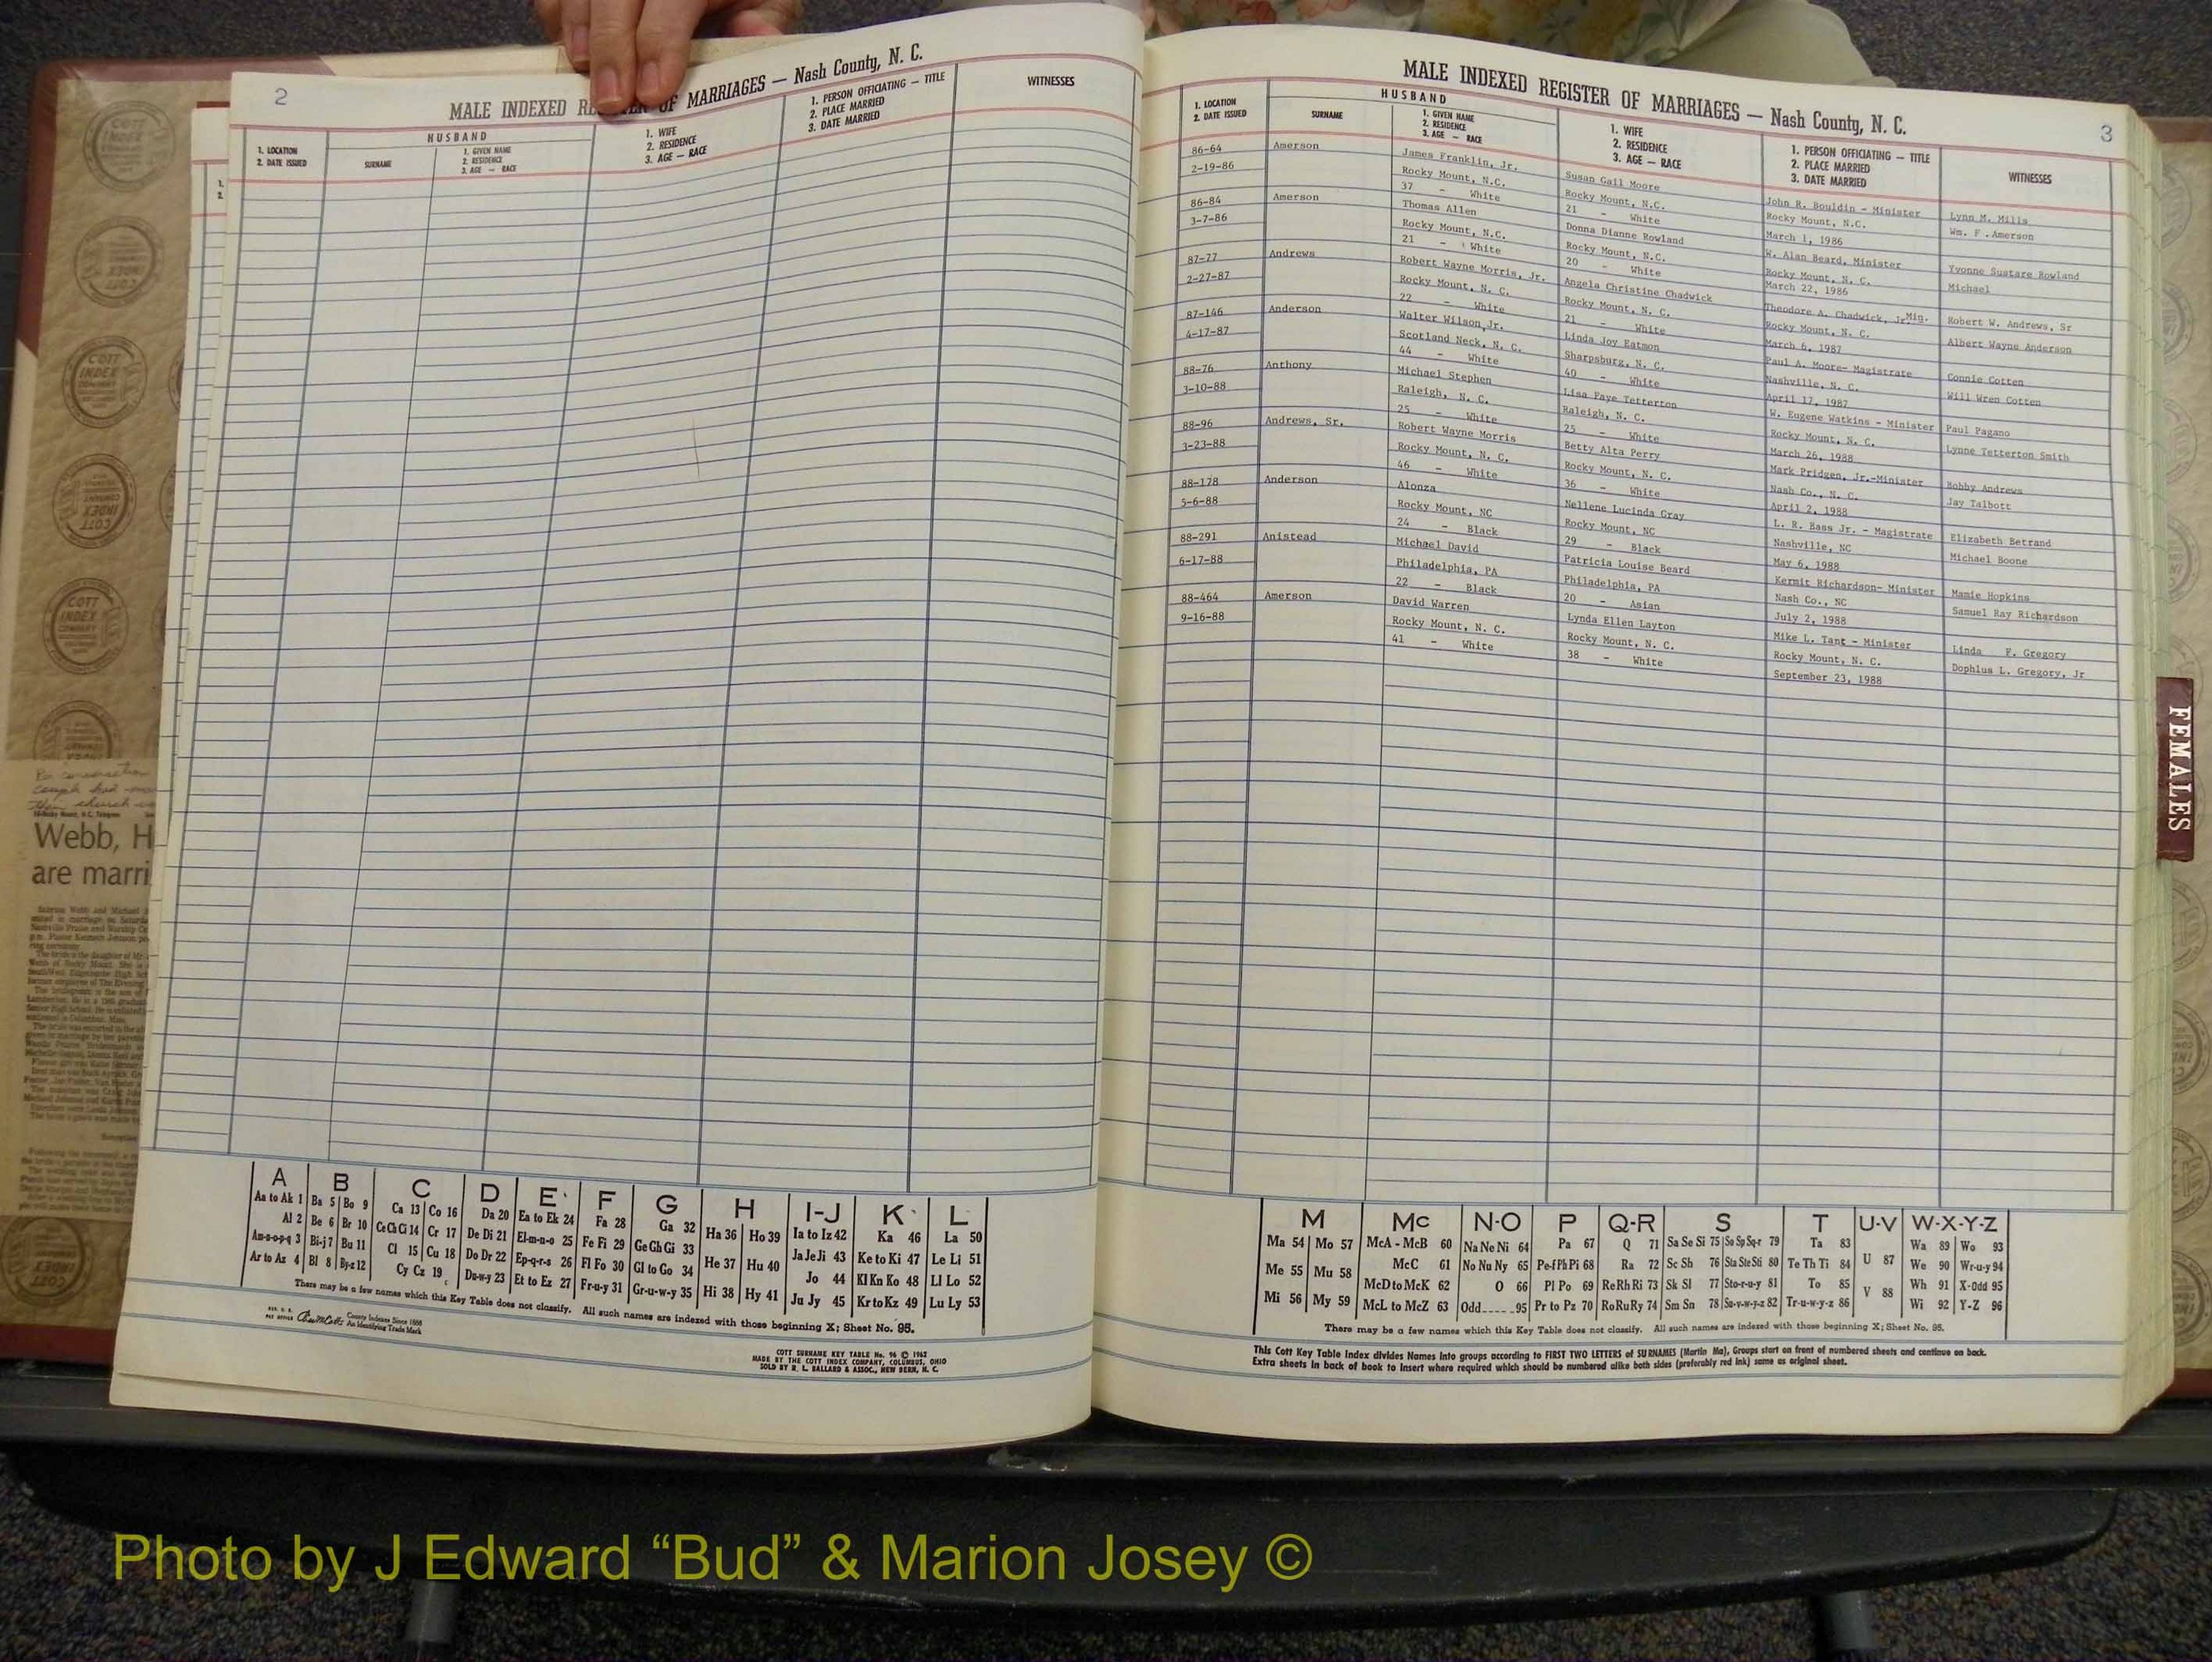 2
MALE INDEXED REGISTER OF MARRIAGES — Nash County, N. C.
1. LOCATION
2. DATE ISSUED
HUSBAND
SURNAME
1. GIVEN NAME
2. RESIDENCE
3. AGE - RACE
1. WIFE
2. RESIDENCE
3. AGE — RACE
1. PERSON OFFICIATING — TITLE
2. PLACE MARRIED
3. DATE MARRIED
WITNESSES
Webb, H
are marri
A
Aa to Ak 1
Al 2
Am-n-o-p-q 3
Ar to Az 4
B
Ba 5 Bo 9
Be 6 Br 10
Bi-j 7 Bu 11
Bl 8 By-z 12
C
Ca 13 Co 16
Ce Ch Ci 14 Cr 17
Cl 15 Cu 18
Cy Cz 19
D
Da 20
De Di 21
Do Dr 22
Du-w-y 23
E
Ea to Ek 24
El-m-n-o 25
Ep-q-r-s 26
Et to Ez 27
F
Fa 28
Fe Fi 29
Fl Fo 30
Fr-u-y 31
G
Ga 32
Ge Gh Gi 33
Gl to Go 34
Gr-u-w-y 35
H
Ha 36 Ho 39
He 37 Hu 40
Hi 38 Hy 41
I-J
Ia to Iz 42
Ja Je Ji 43
Jo 44
Ju Jy 45
K
Ka 46
Ke to Ki 47
Kl Kn Ko 48
Kr to Kz 49
L
La 50
Le Li 51
Ll Lo 52
Lu Ly 53
There may be a few names which this Key Table does not classify. All such names are indexed with those beginning X; Sheet No. 95.
County Indexes Since 1888
An Identifying Trade Mark
COTT SURNAME KEY TABLE No. 96 © 1962
MADE BY THE COTT INDEX COMPANY, COLUMBUS, OHIO
SOLD BY R. L. BALLARD & ASSOC., NEW BERN, N. C.
3
MALE INDEXED REGISTER OF MARRIAGES — Nash County, N. C.
1. LOCATION
2. DATE ISSUED
HUSBAND
SURNAME
1. GIVEN NAME
2. RESIDENCE
3. AGE - RACE
1. WIFE
2. RESIDENCE
3. AGE — RACE
1. PERSON OFFICIATING — TITLE
2. PLACE MARRIED
3. DATE MARRIED
WITNESSES
86-64 Amerson James Franklin, Jr. Susan Gail Moore John R. Bouldin - Minister Lynn M. Mills
2-19-86 Rocky Mount, N.C. Rocky Mount, N.C. Rocky Mount, N.C. Wm. F. Amerson
37 - White 21 - White March 1, 1986
86-84 Amerson Thomas Allen Donna Dianne Rowland W. Alan Beard, Minister Yvonne Sustare Rowland
3-7-86 Rocky Mount, N.C. Rocky Mount, N.C. Rocky Mount, N. C. Michael
21 - White 20 - White March 22, 1986
87-77 Andrews Robert Wayne Morris, Jr. Angela Christine Chadwick Theodore A. Chadwick, Jr. Min. Robert W. Andrews, Sr
2-27-87 Rocky Mount, N. C. Rocky Mount, N. C. Rocky Mount, N. C. Albert Wayne Anderson
22 - White 21 - White March 6, 1987
87-146 Anderson Walter Wilson, Jr. Linda Joy Eatmon Paul A. Moore- Magistrate Connie Cotten
4-17-87 Scotland Neck, N. C. Sharpsburg, N. C. Nashville, N. C. Will Wren Cotten
44 - White 40 - White April 17, 1987
88-76 Anthony Michael Stephen Lisa Faye Tetterton W. Eugene Watkins - Minister Paul Pagano
3-10-88 Raleigh, N. C. Raleigh, N. C. Rocky Mount, N. C. Lynne Tetterton Smith
25 - White 25 - White March 26, 1988
88-96 Andrews, Sr. Robert Wayne Morris Betty Alta Perry Mark Pridgen, Jr.-Minister Bobby Andrews
3-23-88 Rocky Mount, N. C. Rocky Mount, N. C. Nash Co., N. C. Jay Talbott
46 - White 36 - White April 2, 1988
88-178 Anderson Alonza Nellene Lucinda Gray L. R. Bass Jr. - Magistrate Elizabeth Betrand
5-6-88 Rocky Mount, NC Rocky Mount, NC Nashville, NC Michael Boone
24 - Black 29 - Black May 6, 1988
88-291 Anistead Michael David Patricia Louise Beard Kermit Richardson- Minister Mamie Hopkins
6-17-88 Philadelphia, PA Philadelphia, PA Nash Co., NC Samuel Ray Richardson
22 - Black 20 - Asian July 2, 1988
88-464 Amerson David Warren Lynda Ellen Layton Mike L. Tant - Minister Linda F. Gregory
9-16-88 Rocky Mount, N. C. Rocky Mount, N. C. Rocky Mount, N. C. Dophlus L. Gregory, Jr
41 - White 38 - White September 23, 1988
FEMALES
M
Ma 54 Mo 57
Me 55 Mu 58
Mi 56 My 59
Mc
McA - McB 60
McC 61
McD to McK 62
McL to McZ 63
N-O
Na Ne Ni 64
No Nu Ny 65
O 66
Odd 95
P
Pa 67
Pe-f Ph Pi 68
Pl Po 69
Pr to Pz 70
Q-R
Q 71
Ra 72
Re Rh Ri 73
Ro Ru Ry 74
S
Sa Se Si 75 So Sp Sq-r 79
Sc Sh 76 Sta Ste Sti 80
Sk Sl 77 Sto-r-u-y 81
Sm Sn 78 Su-v-w-y-z 82
T
Ta 83
Te Th Ti 84
To 85
Tr-u-w-y-z 86
U-V
U 87
V 88
W-X-Y-Z
Wa 89 Wo 93
We 90 Wr-u-y 94
Wh 91 X-Odd 95
Wi 92 Y-Z 96
There may be a few names which this Key Table does not classify. All such names are indexed with those beginning X; Sheet No. 95.
This Cott Key Table Index divides Names into groups according to FIRST TWO LETTERS of SURNAMES (Martin Ma), Groups start on front of numbered sheets and continue on back.
Extra sheets in back of book to insert where required which should be numbered alike both sides (preferably red ink) same as original sheet.
Photo by J Edward “Bud” & Marion Josey ©